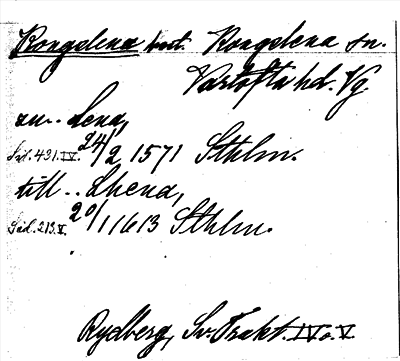 Kongelena hmt. Kongelena sn.
Vartofta hd. Vg.
au.. Lena,
Sid. 431. IV. 24/2 1571 Sthlm.
till .. Lhena,
Sid. 213. V. 20/1 1613 Sthlm.
Rydberg, Sv. Trakt. IV o. V